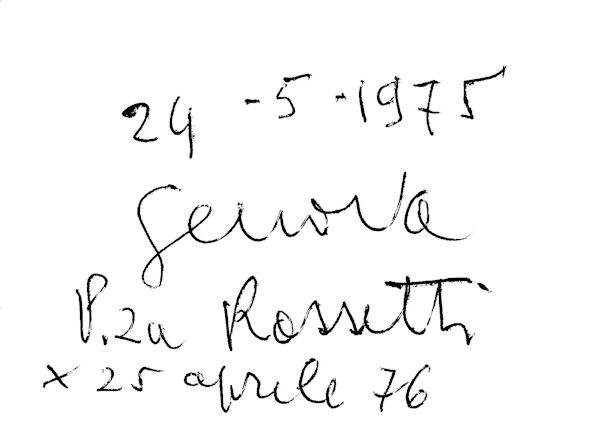 24 -5 -1975
Genova
P.za Rossetti
x 25 aprile 76